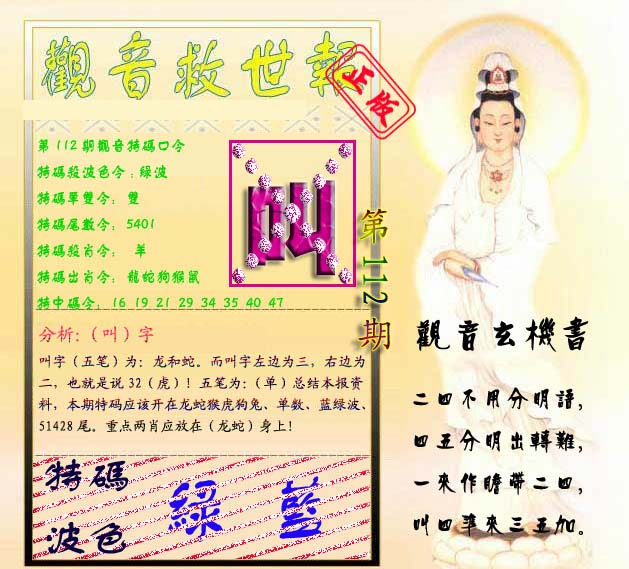 觀音救世報
正版
第112期觀音特碼口令
特碼殺波色令：綠波
特碼單雙令： 雙
特碼尾數令： 5401
特碼殺肖令： 羊
特碼出肖令： 龍蛇狗猴鼠
特中碼令： 16 19 21 29 34 35 40 47
叫
第112期
分析:（叫）字
叫字（五笔）为: 龙和蛇。而叫字左边为三，右边为
二，也就是说 32（虎）！五笔为:（单）总结本报资
料，本期特码应该开在龙蛇猴虎狗兔、单数、蓝绿波、
51428 尾。重点两肖应放在（龙蛇）身上！
特碼
波色
綠 藍
觀音玄機書
二四不用分明語，
四五分明出轉難，
一來作瞻帶二四，
叫四準來三五加。